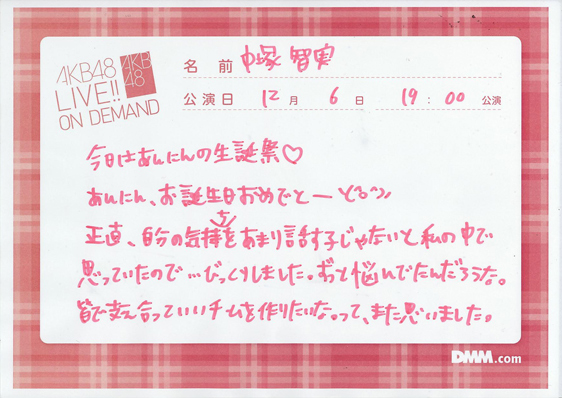 AKB48
LIVE!!
ON DEMAND
AKB
48
名 前 中塚 智実
公演日 12月 6日 19:00 公演
今日はあんにんの生誕祭♡
あんにん、お誕生日おめでとー
正直、自分の気持ちをあまり話す子じゃないと私の中で
思っていたので…びっくりしました。ずっと悩んでたんだろうな。
皆で支え合っていいチームを作りたいな。って、また思いました。
DMM.com